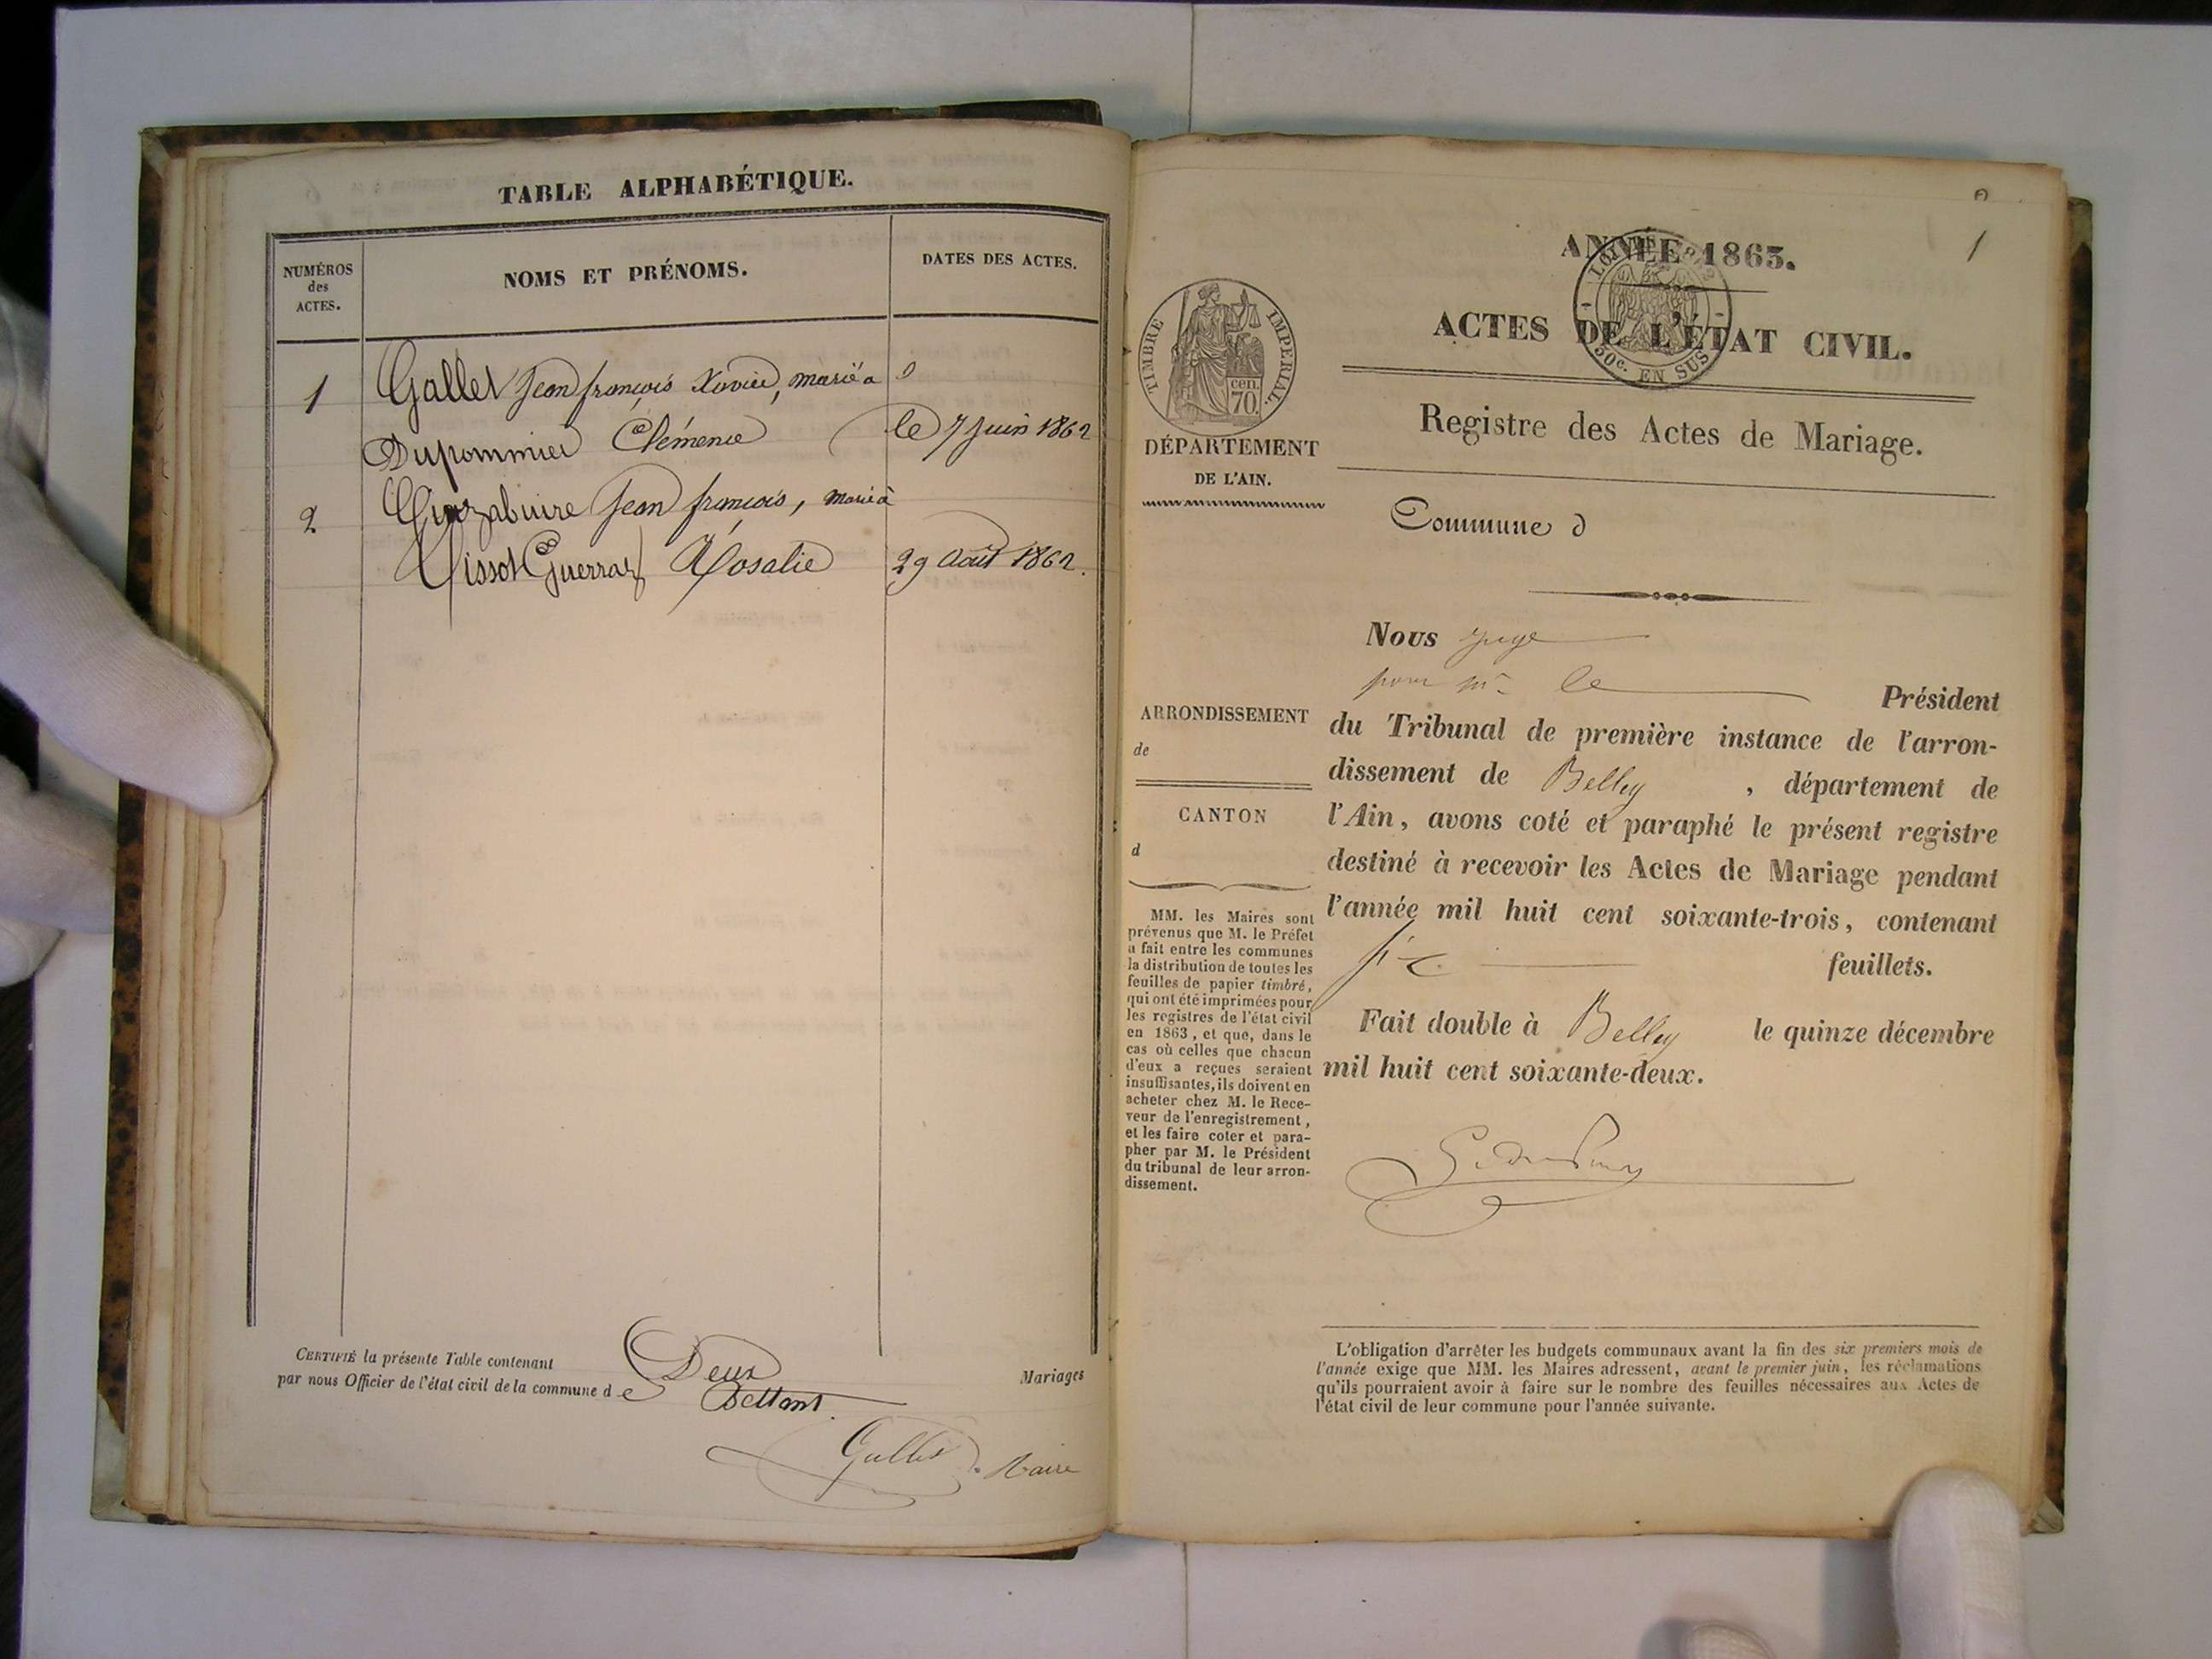 TABLE ALPHABÉTIQUE.
NUMÉROS
des
ACTES.
NOMS ET PRÉNOMS.
DATES DES ACTES.
1 Gallet Jean françois Xavier, marié a
Dupommier Clémence le 7 Juin 1862
2 Jean françois, marié à
Rosalie 29 Août 1862.
CERTIFIÉ la présente Table contenant Deux Mariages
par nous Officier de l'état civil de la commune de Bettant
Gallet. Maire
1
ANNÉE 1863.
ACTES DE L'ÉTAT CIVIL.
30c. EN SUS
TIMBRE IMPERIAL.
cen.
70.
Registre des Actes de Mariage.
DÉPARTEMENT
DE L'AIN.
Commune d
Nous juge
pour Mr le Président
du Tribunal de première instance de l'arron-
dissement de Belley , département de
l'Ain, avons coté et paraphé le présent registre
destiné à recevoir les Actes de Mariage pendant
l'année mil huit cent soixante-trois, contenant
six feuillets.
Fait double à Belley le quinze décembre
mil huit cent soixante-deux.
ARRONDISSEMENT
de
CANTON
d
MM. les Maires sont
prévenus que M. le Préfet
a fait entre les communes
la distribution de toutes les
feuilles de papier timbré,
qui ont été imprimées pour
les registres de l'état civil
en 1863, et que, dans le
cas où celles que chacun
d'eux a reçues seraient
insuffisantes, ils doivent en
acheter chez M. le Rece-
veur de l'enregistrement,
et les faire coter et para-
pher par M. le Président
du tribunal de leur arron-
dissement.
L'obligation d'arrêter les budgets communaux avant la fin des six premiers mois de
l'année exige que MM. les Maires adressent, avant le premier juin, les réclamations
qu'ils pourraient avoir à faire sur le nombre des feuilles nécessaires aux Actes de
l'état civil de leur commune pour l'année suivante.